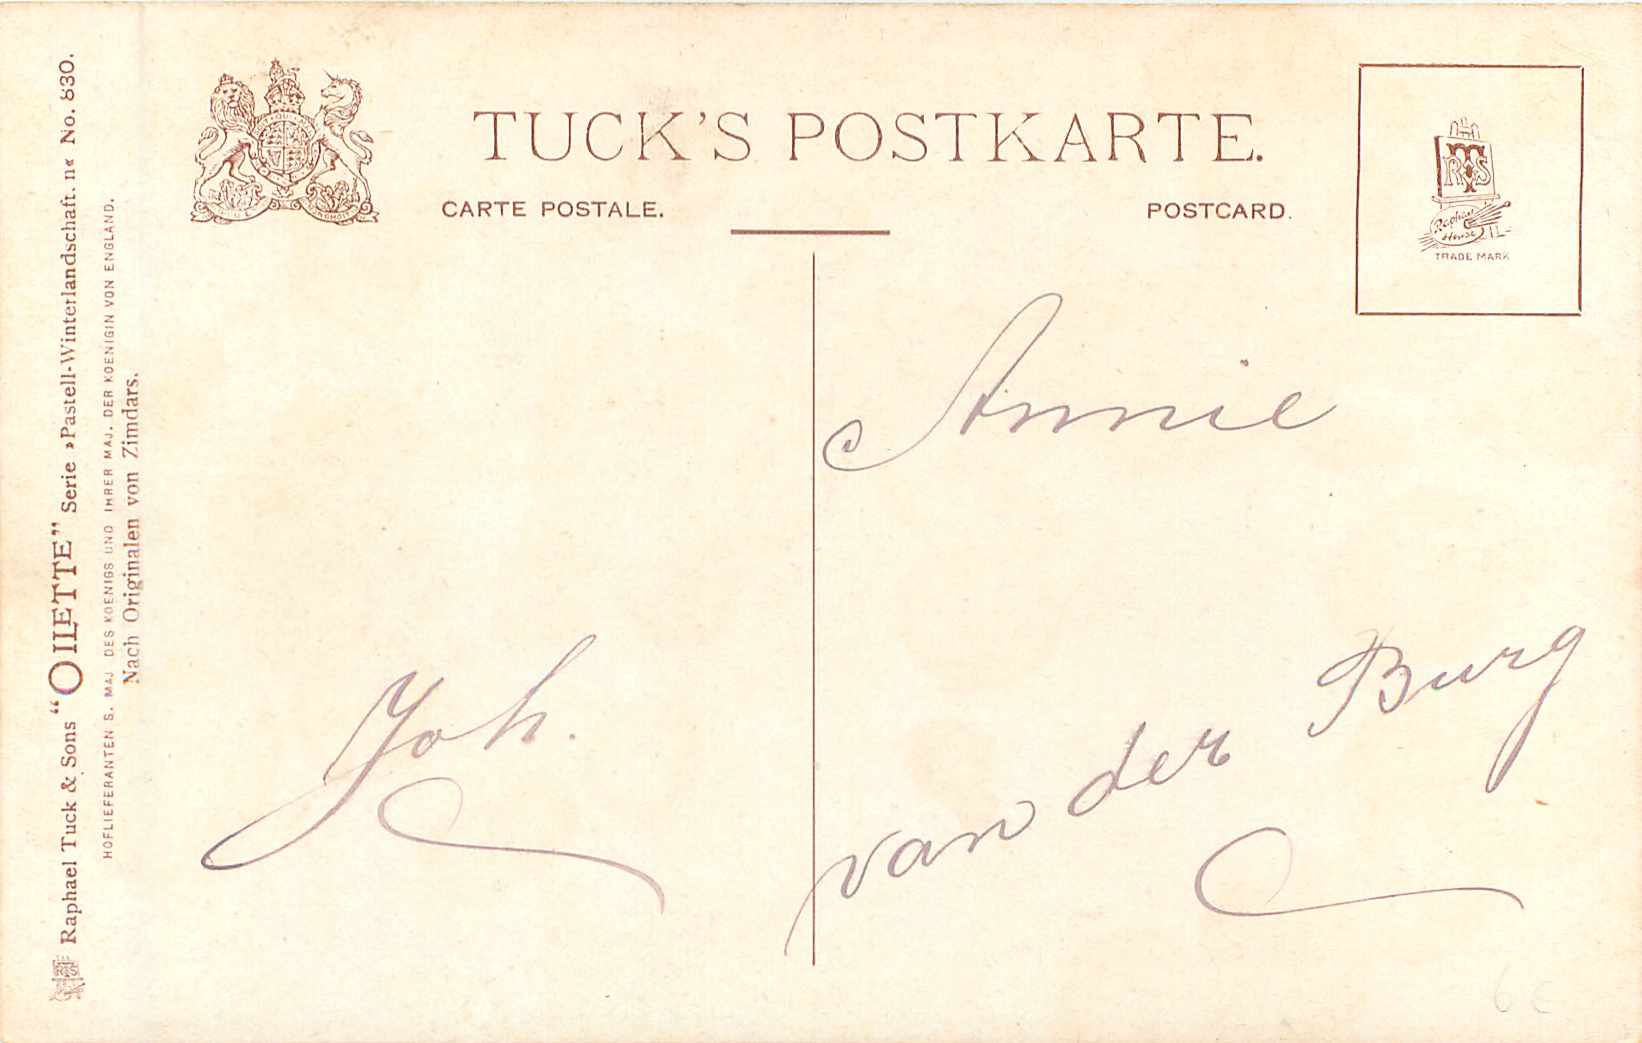 TUCK'S POSTKARTE.
CARTE POSTALE. POSTCARD.
R T S
Raphael
House
TRADE MARK
Annie
van der Burg
Joh.
Raphael Tuck & Sons “OILETTE” Serie »Pastell-Winterlandschaft. II« No. 830.
HOFLIEFERANTEN S. MAJ. DES KOENIGS UND IHRER MAJ. DER KOENIGIN VON ENGLAND.
Nach Originalen von Zimdars.
6 €